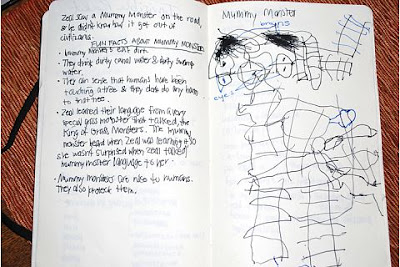 Zeal saw a Mummy Monster on the road
& he didn't know how it got out of
civilizations.
FUN FACTS ABOUT MUMMY MONSTERS
• Mummy Monsters eat dirt.
• They drink dirty canal water & dirty swamp
water.
• They can sense that humans have been
touching a tree & they dont do any harm
to that tree.
• Zeal learned their language from a very
special grass monster that talked, the
King of Grass Monsters. The mummy
monster heard when Zeal was learning it so
she wasn't surprised when Zeal talked
mummy monster language to her.
• Mummy monsters are nice to humans.
They also protect them.
Mummy Monster
brains
eyes